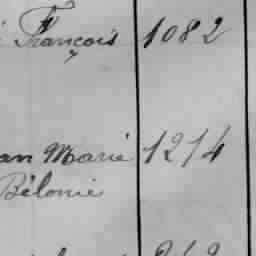 François 1082
an Marie 1214
Bélonie